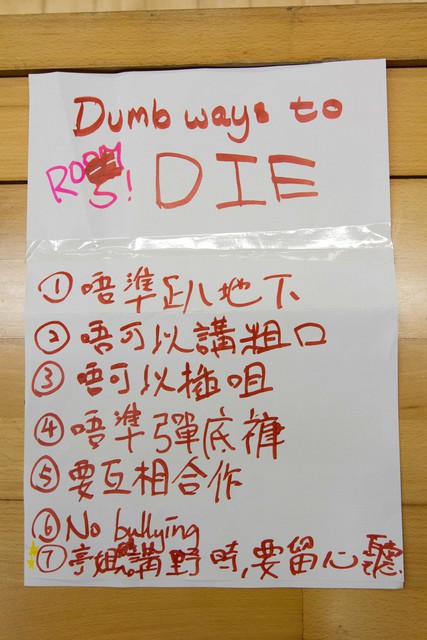 Dumb ways to
DIE
ROOM
5!
① 唔準趴地下
② 唔可以講粗口
③ 唔可以插咀
④ 唔準彈底褲
⑤ 要互相合作
⑥ No bullying
⑦ 亭姐講野時,要留心聽